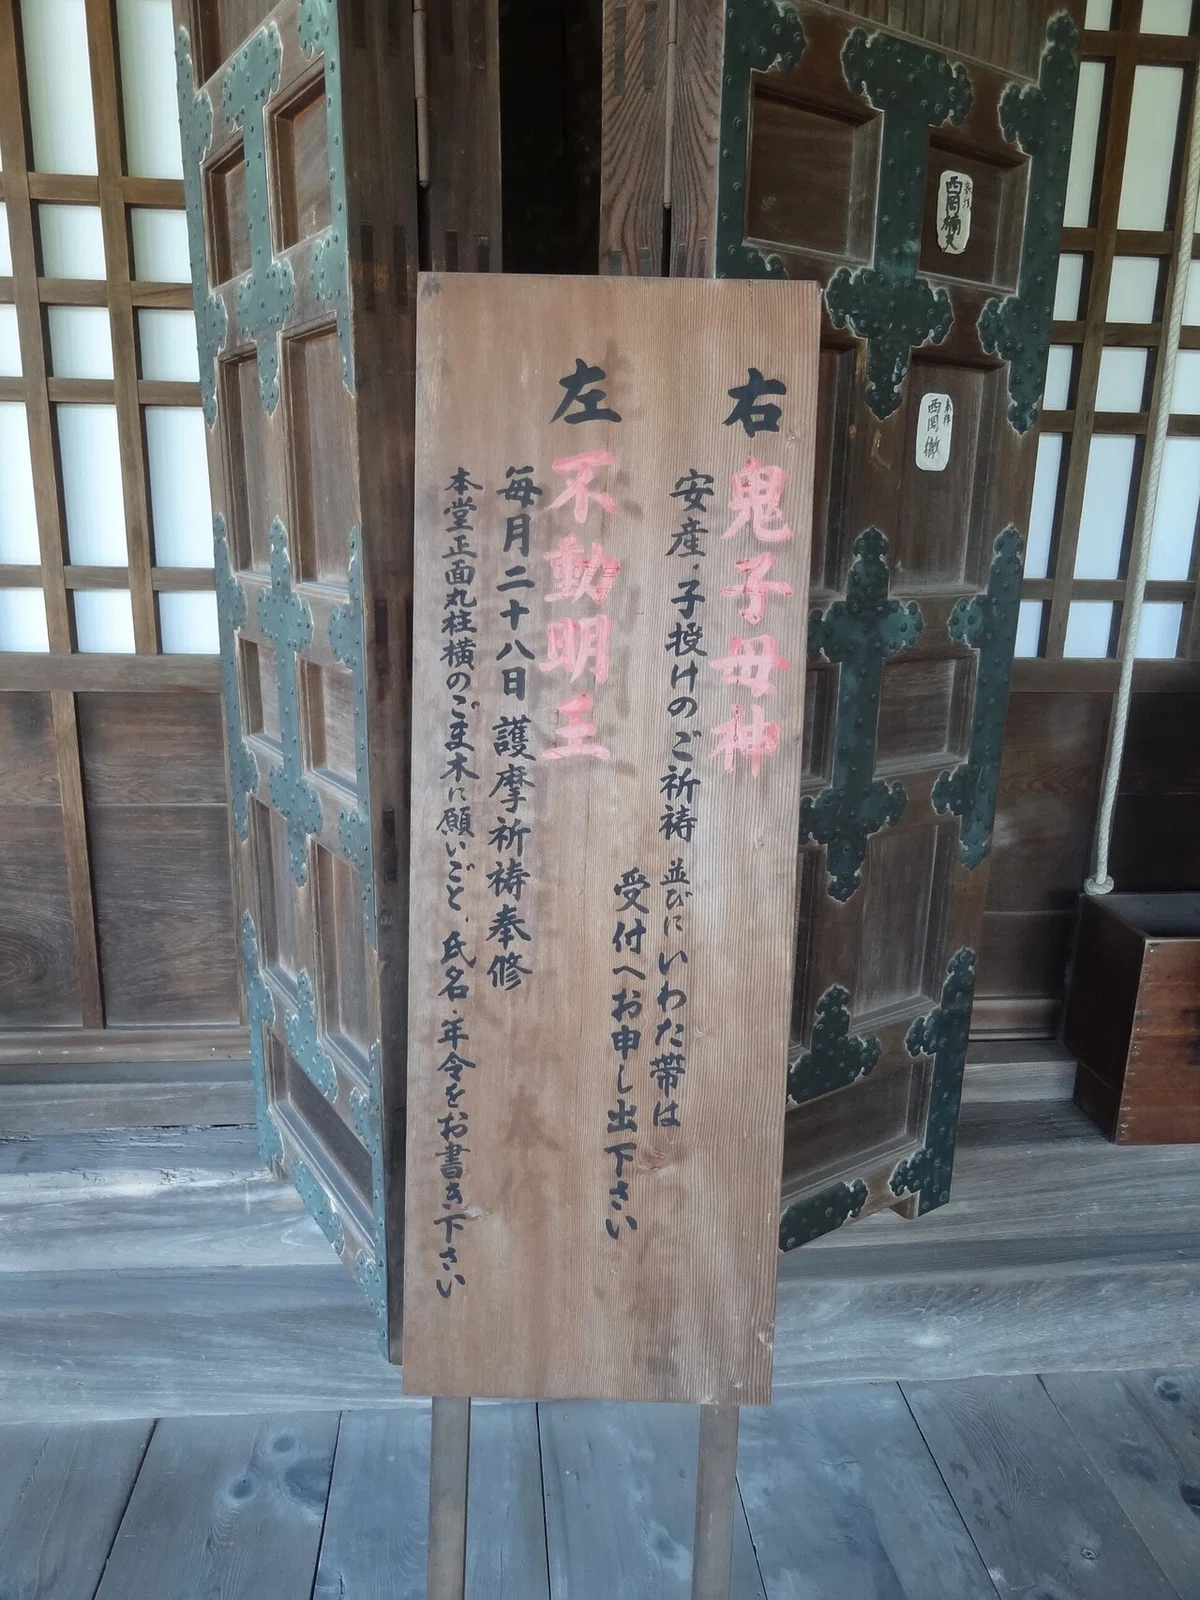 右 鬼子母神
安産・子授けのご祈祷 並びに いわた帯は
受付へお申し出下さい
左 不動明王
毎月二十八日 護摩祈祷奉修
本堂正面丸柱横のごま木に願いごと、氏名・年令をお書き下さい
西岡
西岡 徹